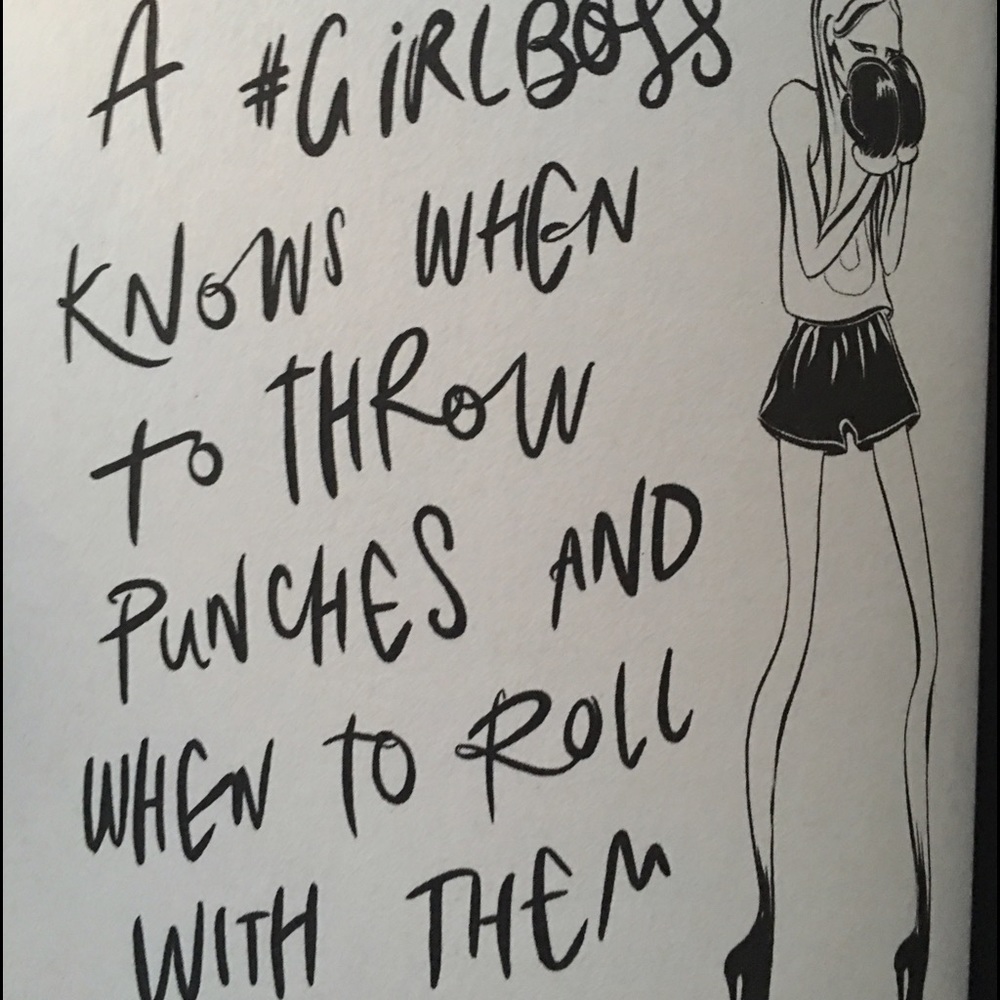 A #GiRLBOSS
KNOWS WHEN
TO THROW
PUNCHES AND
WHEN TO ROLL
WITH THEM